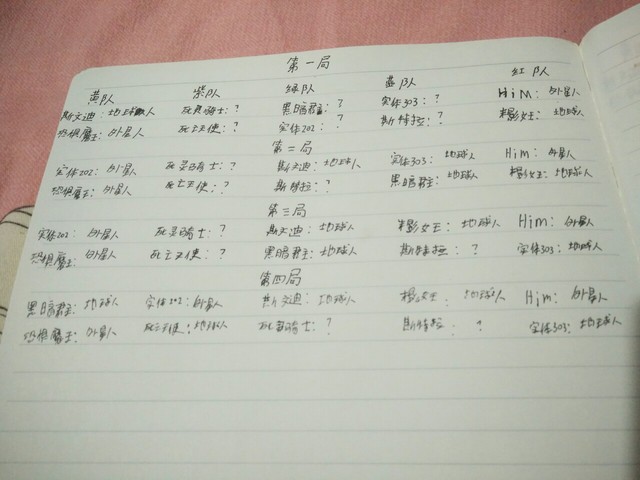 第一局
黄队 紫队 绿队 蓝队 红队
斯文迪：地球人 死灵骑士：？ 黑暗君主：？ 实体303：？ HiM：外星人
恐惧魔王：外星人 死亡天使：？ 实体202：？ 斯特拉：？ 粽影女王：地球人
第二局
实体202：外星人 死灵骑士：？ 斯文迪：地球人 实体303：地球人 Him：外星人
恐惧魔王：外星人 死亡天使：？ 斯特拉：？ 黑暗君主：地球人 粽影女王：地球人
第三局
实体202：外星人 死灵骑士：？ 斯文迪：地球人 粽影女王：地球人 Him：外星人
恐惧魔王：外星人 死亡天使：？ 黑暗君主：地球人 斯特拉：？ 实体303：地球人
第四局
黑暗君主：地球人 实体202：外星人 斯文迪：地球人 女王：地球人 Him：外星人
恐惧魔王：外星人 死亡天使：地球人 死灵骑士：？ 斯特拉：？ 实体303：地球人